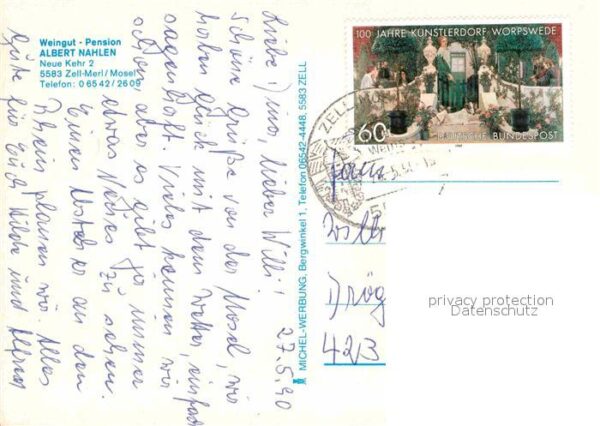 Weingut - Pension
ALBERT NAHLEN
Neue Kehr 2
5583 Zell-Merl/Mosel
Telefon: 0 65 42 / 26 09
27.5.90
Liebe Dina, lieber Willi!
Schöne Grüße von der Mosel, wir
haben Glück mit dem Wetter, einfach
sagenhaft. Vieles kennen wir
schon aber es gibt ja immer
etwas Neues zu sehen.
Einen Abstecher an den
Rhein planen wir. Alles
Gute für Euch Hilde und Alfred
MICHEL-WERBUNG, Bergwinkel 1, Telefon 06542-4448, 5583 ZELL
100 JAHRE KÜNSTLERDORF WORPSWEDE
60
DEUTSCHE BUNDESPOST
ZELL
Fam.
Dröge
423
privacy protection
Datenschutz